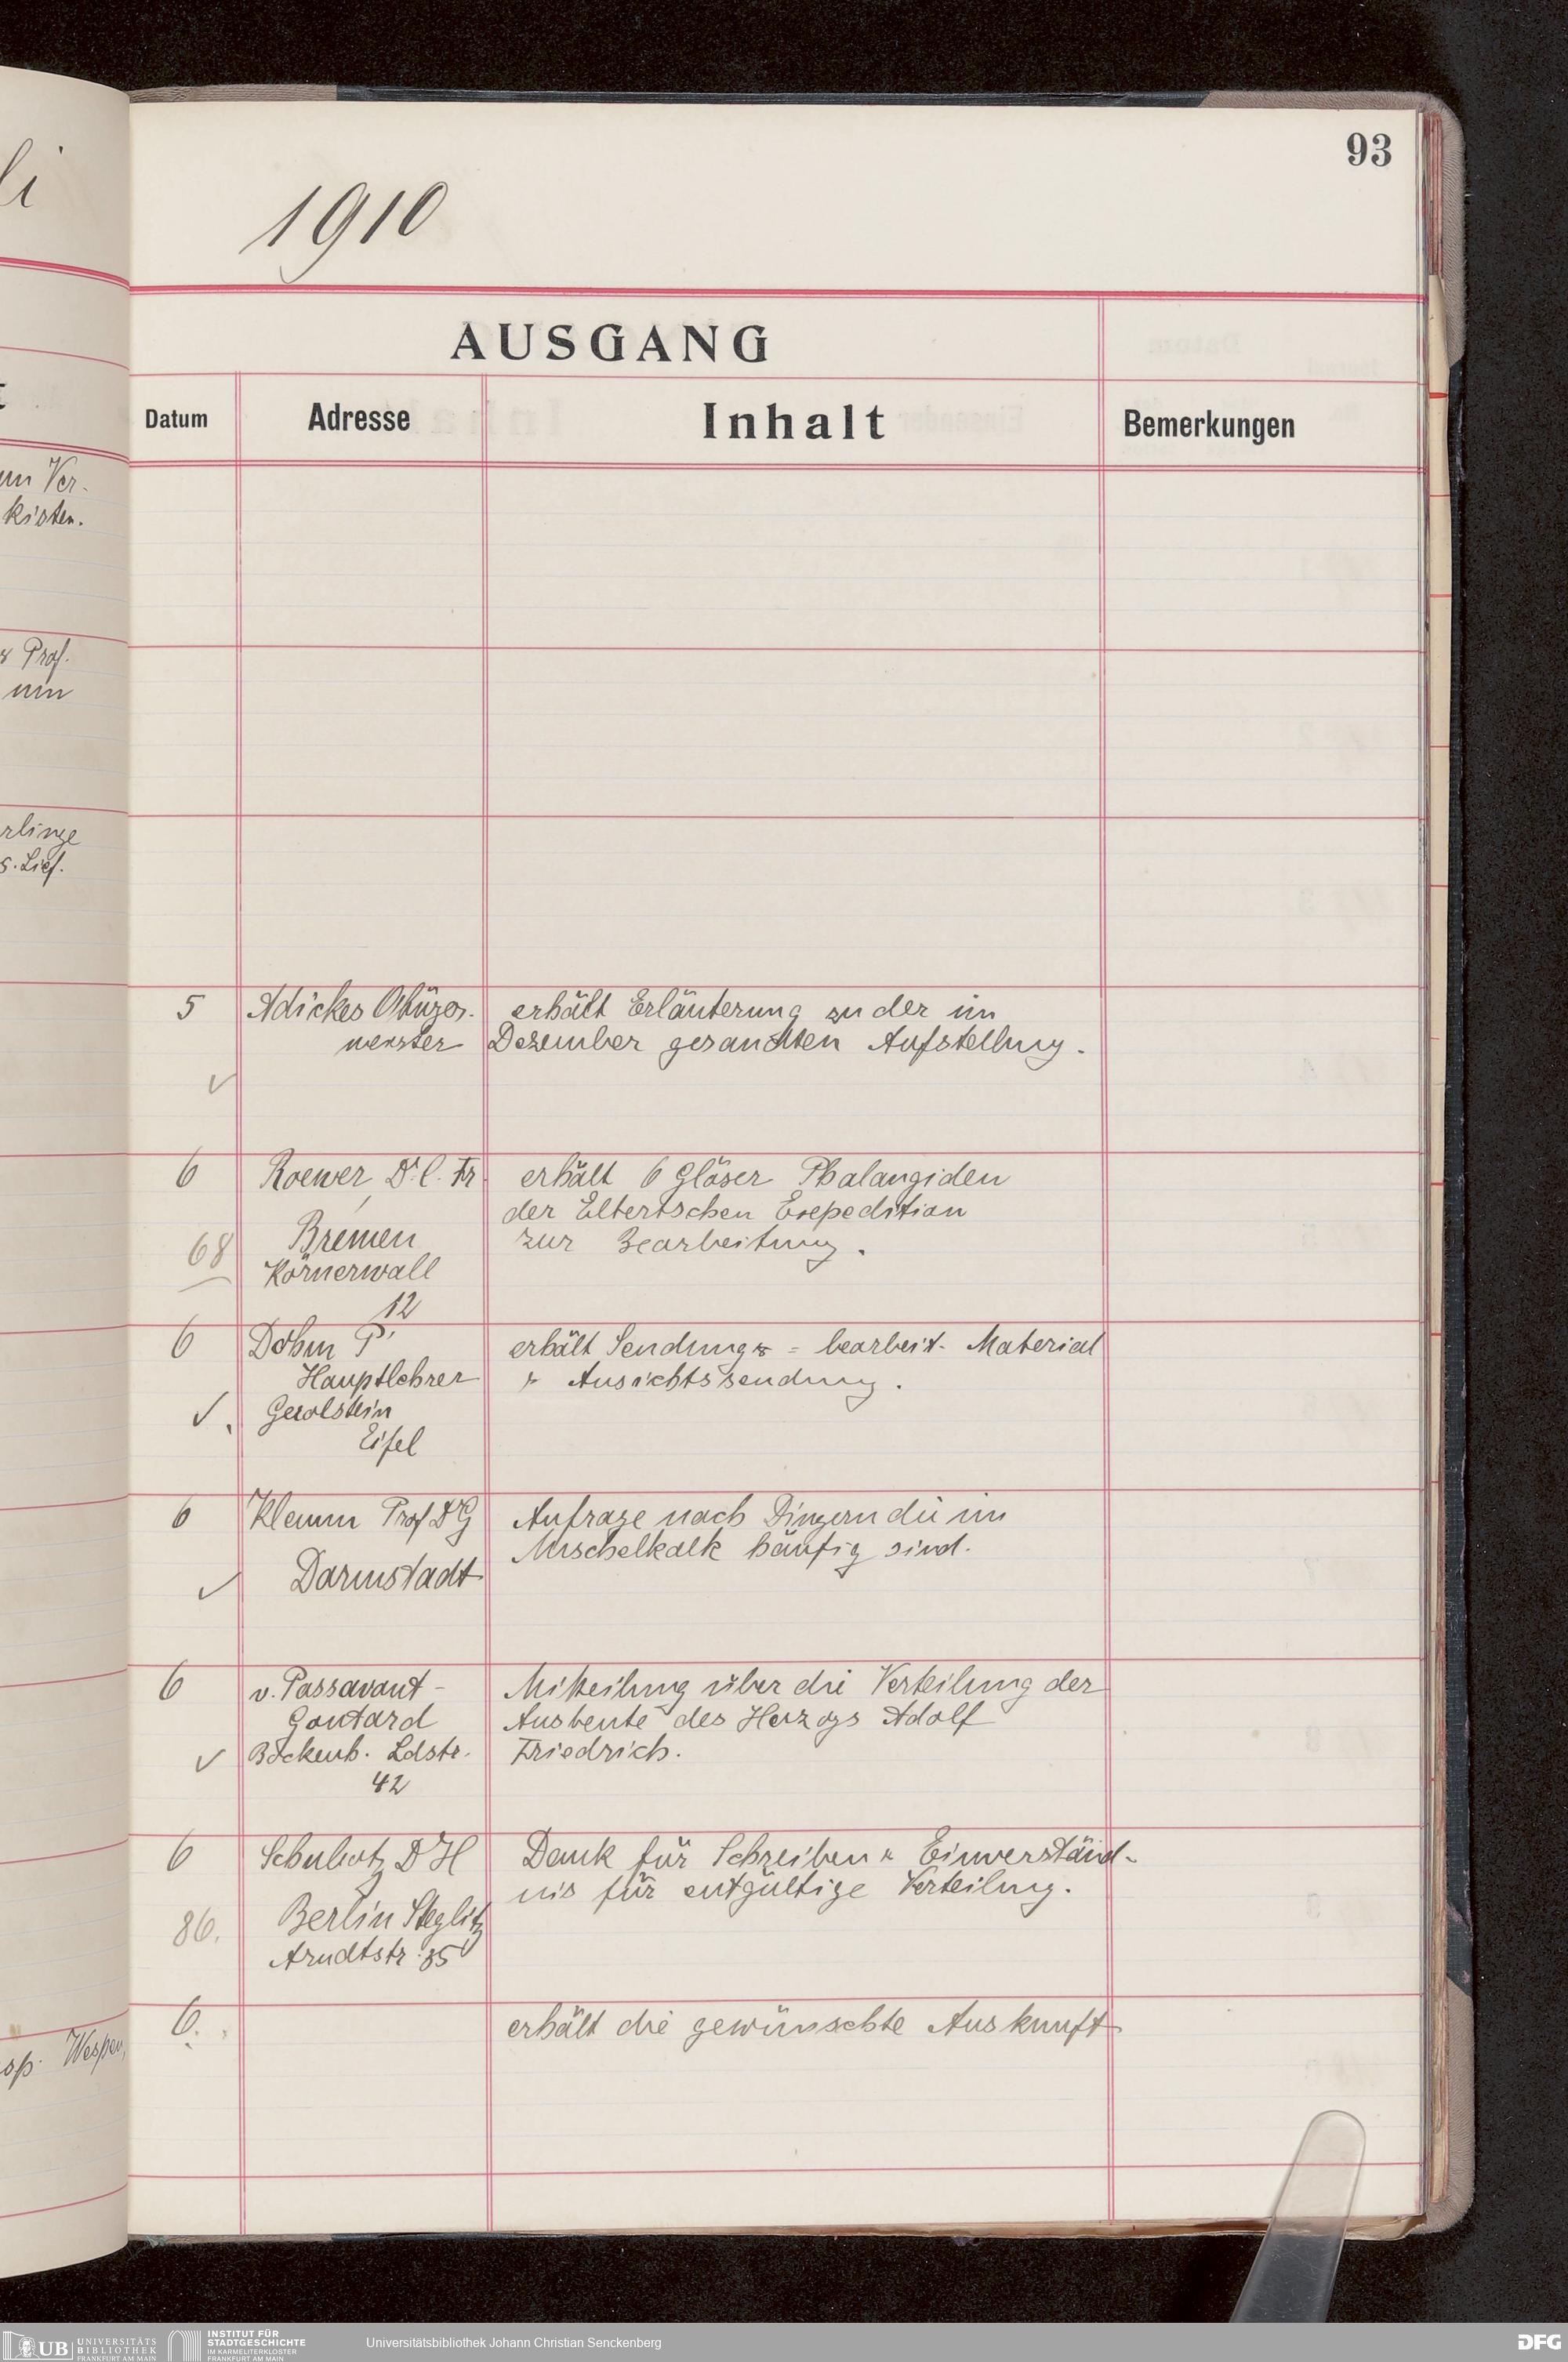 93
1910
AUSGANG
Datum
Adresse
Inhalt
Bemerkungen
um Ver-
kisten.
Prof.
um
s. Lief.
Wespen,
5
Adickes Obürger-
meister
erhält Erläuterung zu der im
Dezember gesandten Aufstellung.
6
Roewer Dr. C. Fr.
Bremen
Körnerwall
12
68
erhält 6 Gläser Phalangiden
der Elbertschen Expedition
zur Bearbeitung.
6
Dohm P.
Hauptlehrer
Gerolstein
Eifel
erhält Sendung = bearbeit. Material
Ansichtssendung.
6
Klemm Prof Dr G
Darmstadt
Anfrage nach Dingen die im
Muschelkalk häufig sind.
6
v. Passavant-
Gontard
Bockenh. Ldstr.
42
Mitteilung über die Verteilung der
Ausbeute des Herzogs Adolf
Friedrich.
6
Schubotz Dr H
Berlin Steglitz
Arndtstr. 35
86.
Dank für Schreiben u. Einverständ-
nis für entgültige Verteilung.
6.
erhält die gewünschte Auskunft
UB UNIVERSITÄTS
BIBLIOTHEK
FRANKFURT AM MAIN
INSTITUT FÜR
STADTGESCHICHTE
IM KARMELITERKLOSTER
FRANKFURT AM MAIN
Universitätsbibliothek Johann Christian Senckenberg
DFG